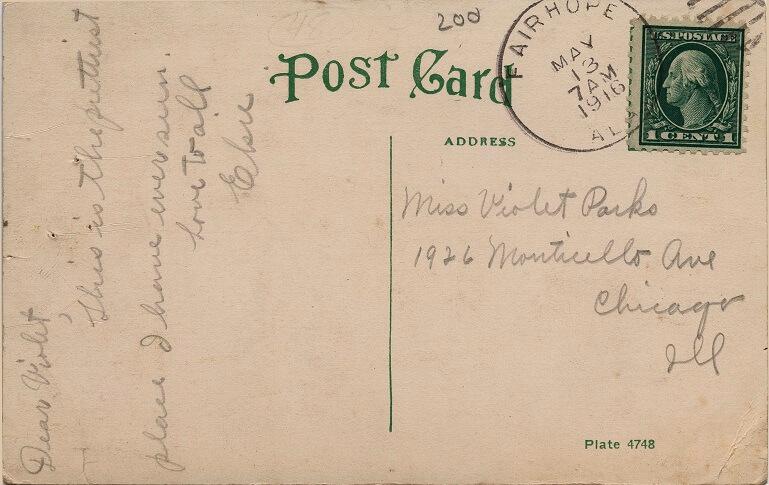 200
Post Card
FAIRHOPE
MAY
13
7 AM
1916
ALA
U.S. POSTAGE
1 CENT 1
ADDRESS
Dear Violet,
This is the puttiest
place I have ever seen.
Love to all
Miss Violet Parks
1926 Monticello Ave
Chicago
Ill
Plate 4748